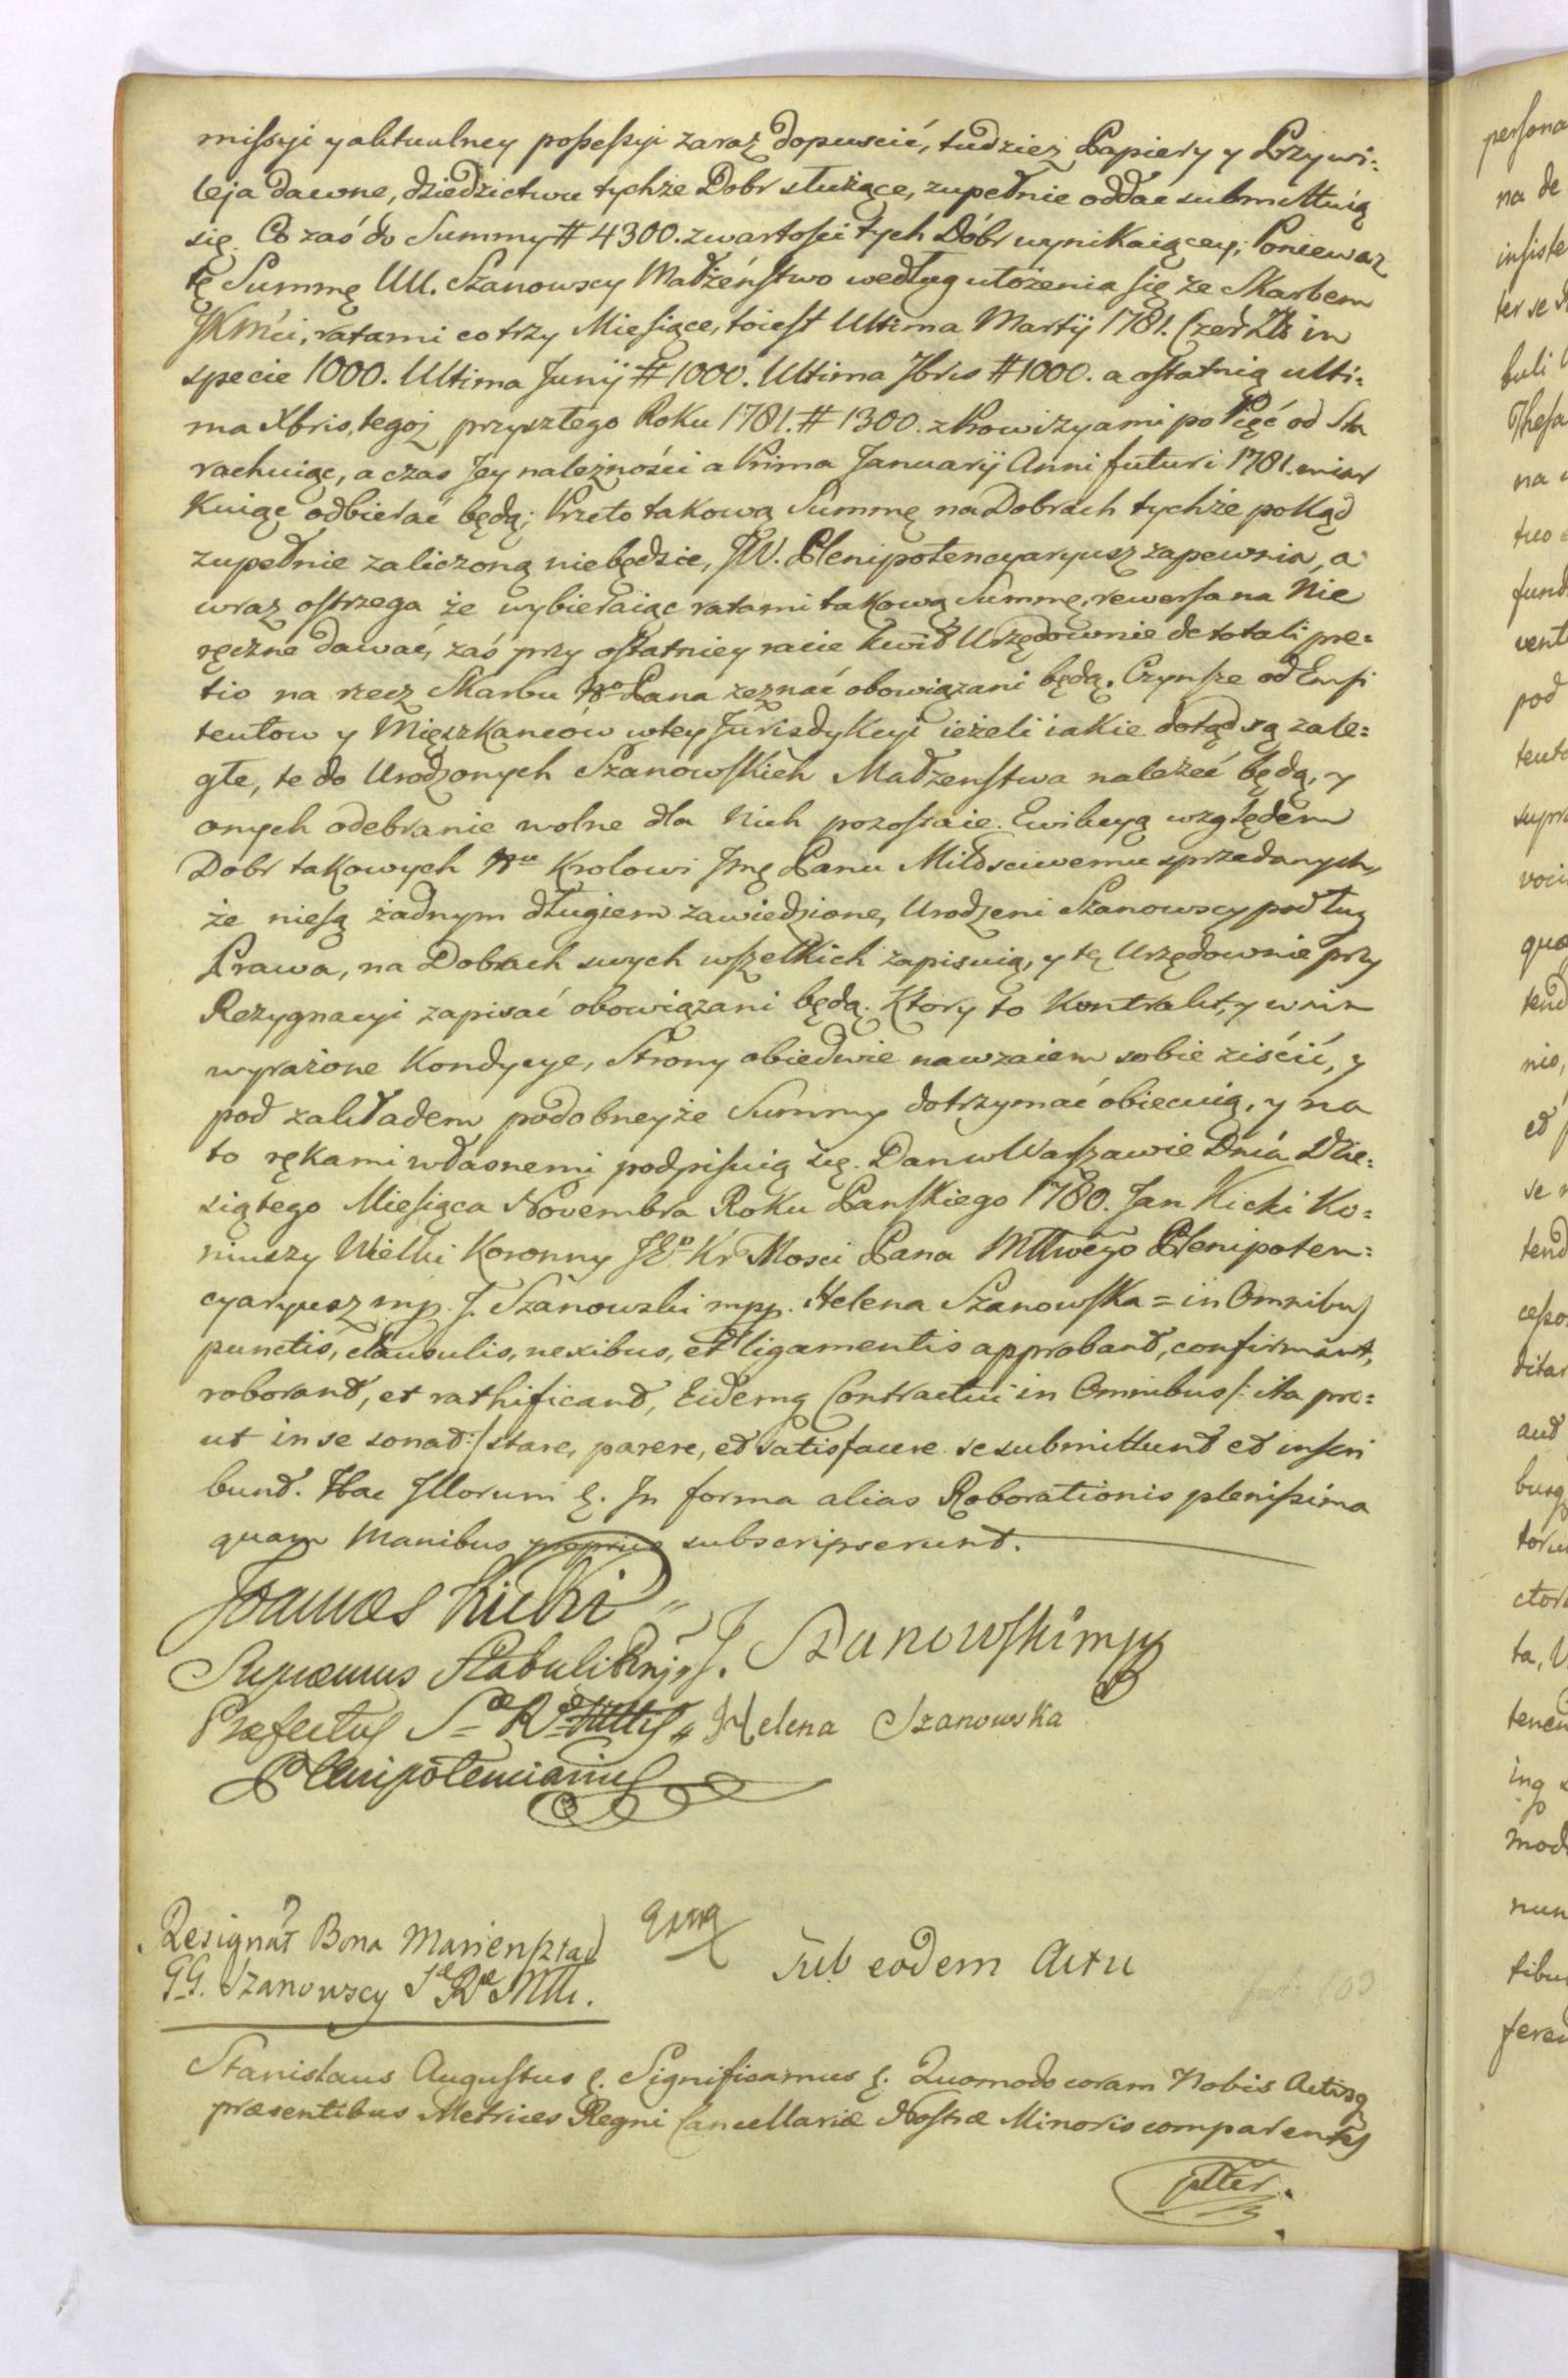 missyi y aktualney possessyi zaraz dopuscić, tudziez Papiery y Przywi:
leja dawne, dziedzictwu tychże Dobr służące, zupełnie oddać submittuią
się. Co zaś do Summy # 4300. z wartości tych Dóbr wynikaiącey; Poniewaz
tę Summę UU. Szanowscy Małżeństwo według ułożenia się ze Skarbem
JKMci, ratami co trzy Miesiące, toiest Ultima Martij 1781. Czer Zł: in
specie 1000. Ultima Junij # 1000. Ultima 7bris # 1000. a ostatnią ulti:
ma Xbris, tegoż przyszłego Roku 1781. # 1300. z Prowizyami po Pięć od Sta
rachuiąc, a czas Jey należności a Prima Januarij Anni futuri 1781. miar
kuiąc odbierać będą; Przeto takową Summę na Dobrach tychże pokąd
zupełnie zaliczoną niebędzie, JW. Plenipotencyaryusz zapewnia, a
wraz ostrzega że wybieraiąc ratami takową Summę, rewersa na Nie
ręczne dawać, zaś przy ostatniey racie kwit Urzędownie de totali pre:
tio na rzecz Skarbu Pana zeznać obowiązani będą. Czynsze od Emfi
teutow y Mięszkancow w tey Jurisdykcyi ieżeli iakie dotąd są zale:
głe, te do Urodzonych Szanowskich Małzenstwa należeć będą, y
onych odebranie wolne dla Nich pozostaie. Ewikcyą względem
Dobr takowych Krolowi Jmę Panu Miłosciwemu sprzedanych,
że niesą żadnym długiem zawiedzione, Urodzeni Szanowscy podług
Prawa, na Dobrach swych wszelkich zapisuią, y tę Urzędownie przy
Rezygnacyi zapisać obowiązani będą. Ktory to Kontrakt, y w nim
wyrażone Kondycye, Strony obiedwie nawzaiem sobie ziścić, y
pod zakładem podobneyże Summy dotrzymać obiecuią, y na
to rękami własnemi podpisuią się. Dan w Warszawie Dnia Dzie:
siątego Miesiąca Novembra Roku Panskiego 1780. Jan Kicki Ko:
niuszy Wielki Koronny JEo Kr Mosci Pana Mttwego Plenipoten:
cyaryusz mp. J. Szanowski mpp. Helena Szanowska = in Omnibus
punctis, clausulis, nexibus, et ligamentis approbant, confirmant,
roborant, et rathificant, Eidemq Contractui in Omnibus /: ita pro:
ut in se sonat :/ stare, parere, et satisfacere se submittunt et inscri
bunt. Hac Illorum &. In forma alias Roborationis plenissima
quam Manibus propriis subscripserunt.
Joannes Kicki
Supraemus Stabuli Regni J. Szanowski mpp
Praefectus Sae Rae Mttis Helena Szanowska
Plenipotenciarius
Resignat Bona Marienstad
GG. Szanowscy Sae Rae Mtti.
Sub eodem Actu
Stanislaus Augustus &. Significamus &. Quomodo coram Nobis Actisq
praesentibus Metrices Regni Cancellariae Nostrae Minoris comparentes